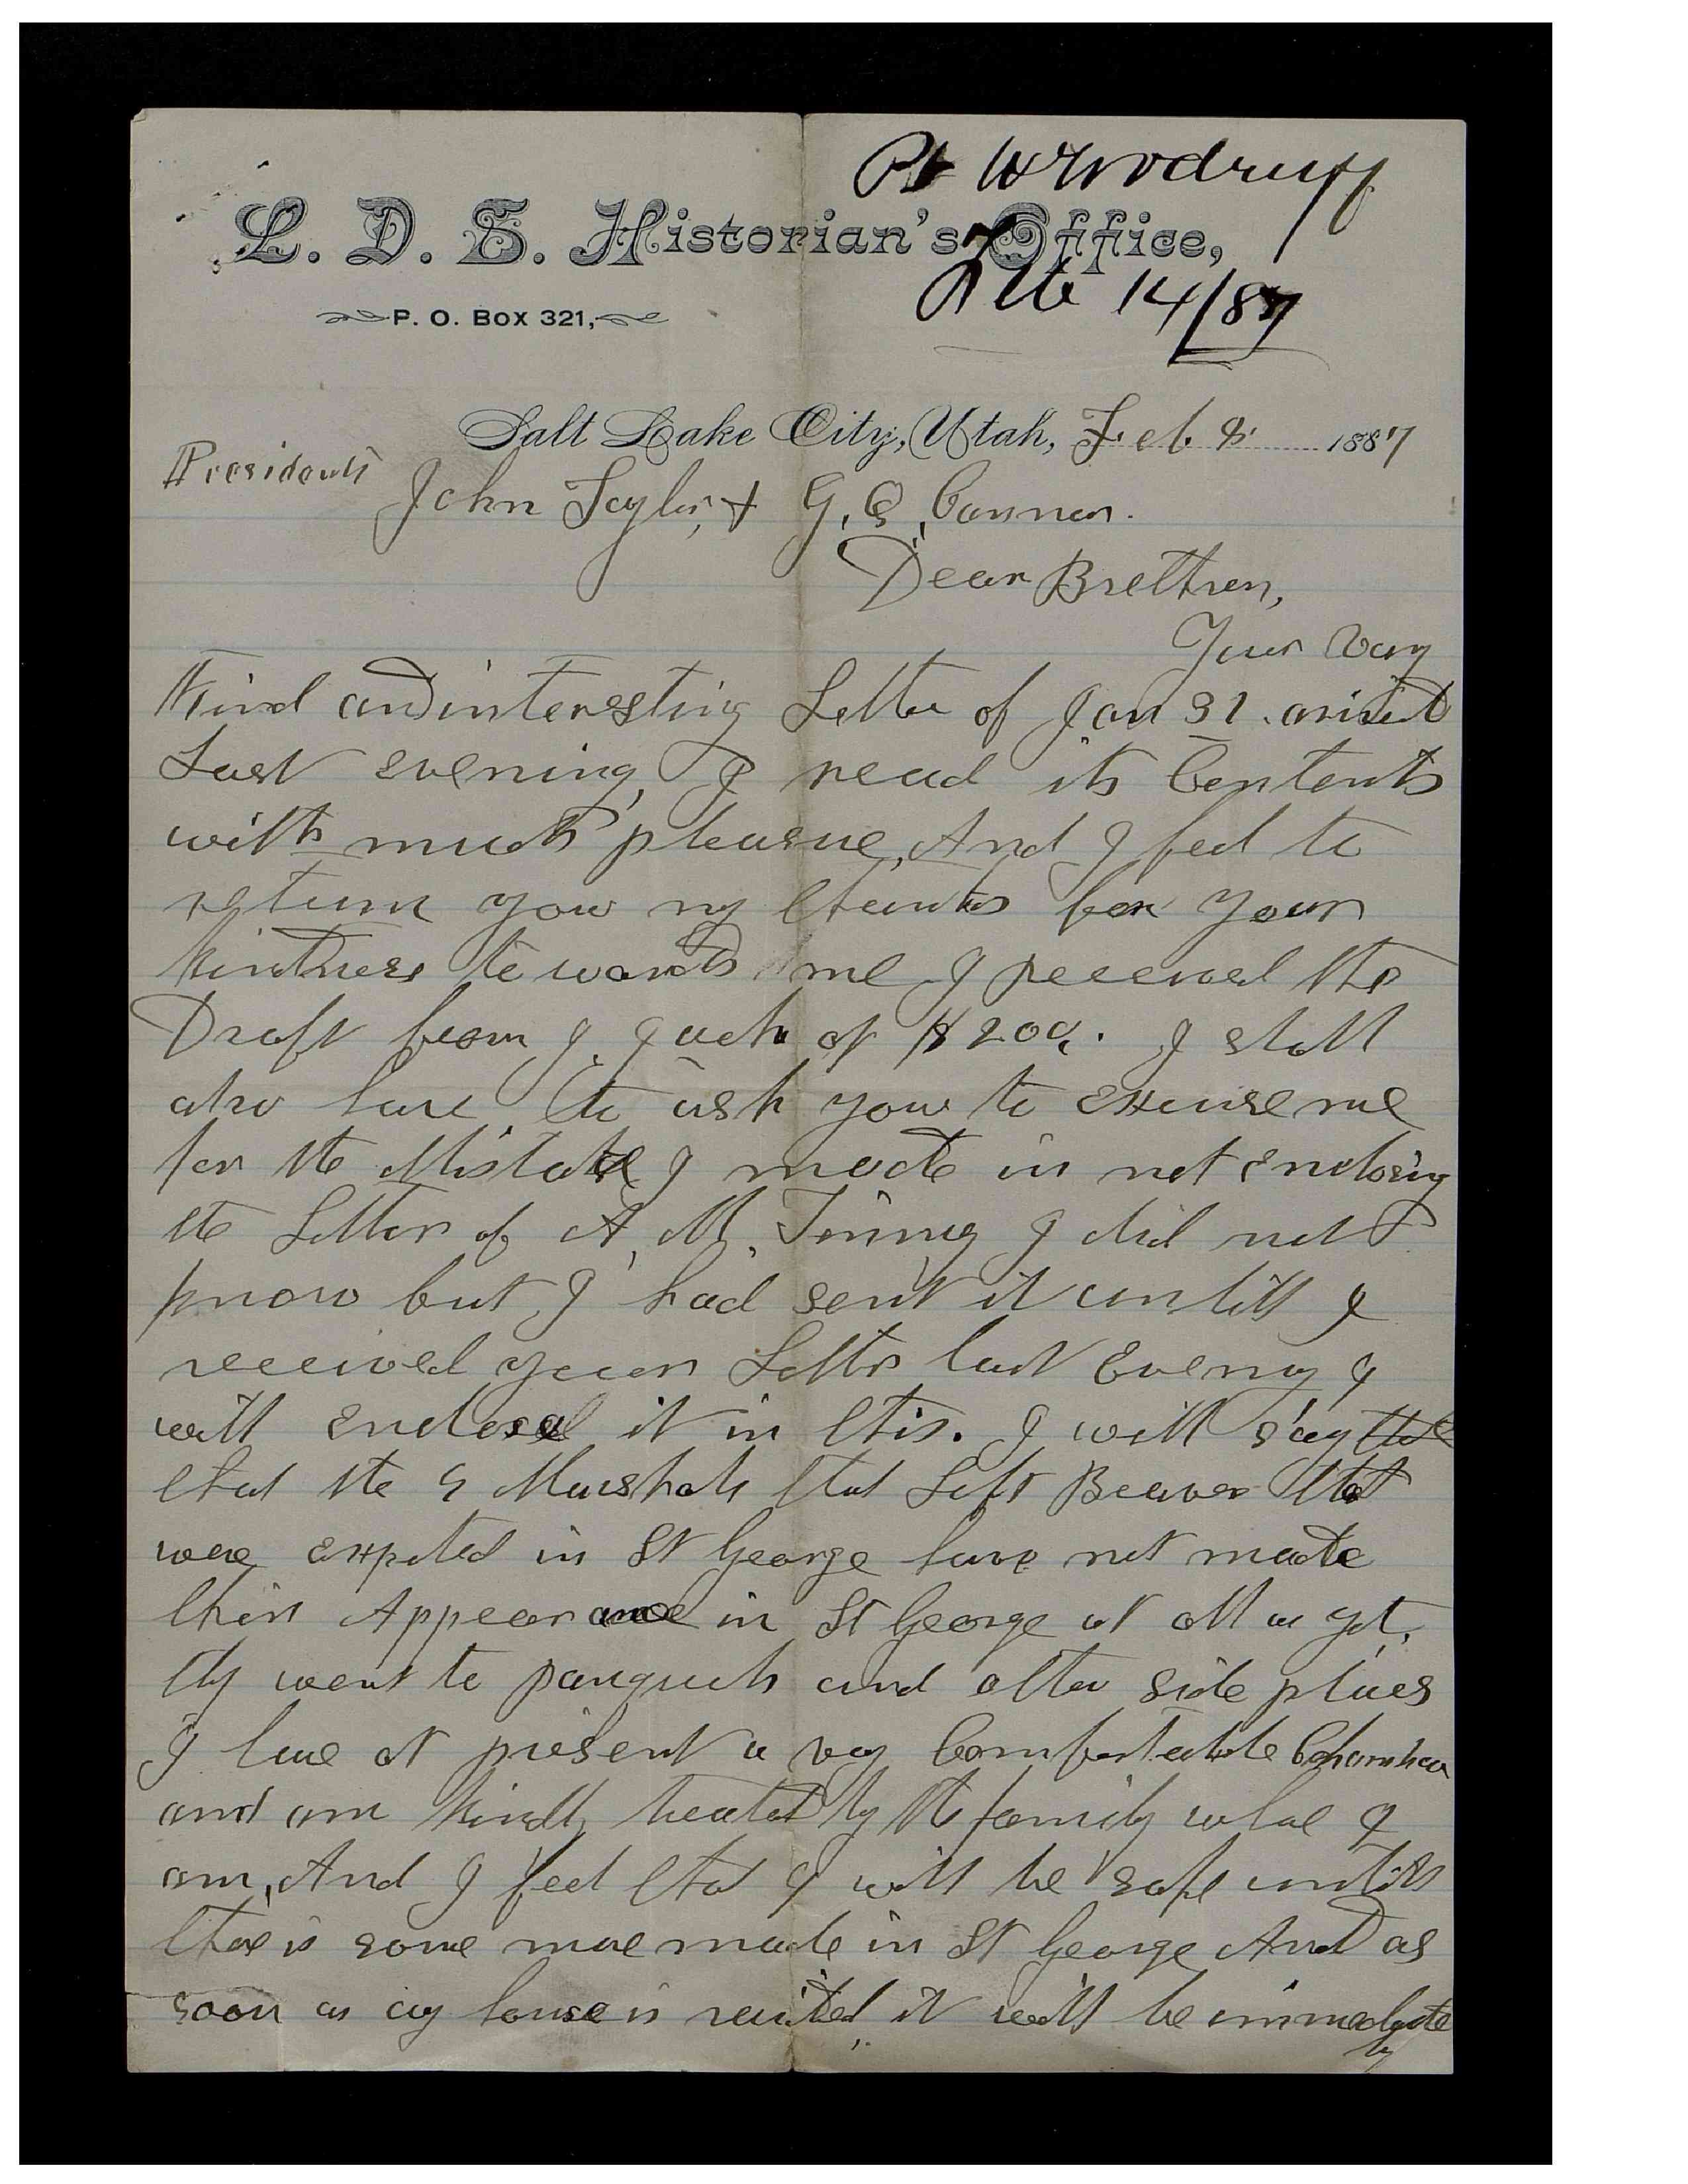 W Woodruff
L. D. S. Historian's Office,
Feb 14/87
P. O. Box 321,
Salt Lake City, Utah, Feb 8 1887
Presidents
John Taylor, & G, Q, Cannon.
Dear Brethren,
Your Very
Kind and interesting Letter of Jan 31. arived
Last evening, I read its Contents
with much pleasure, And I feel to
return you my thanks for your
kindness towards me I received the
Draft from J. Jack of $200,. I shall
also have to ask you to excuse me
for the Mistake I made in not enclosing
the Letter of A, M, I did not
know but I had sent it untill I
received your Letter last Evening I
will enclose it in this. I will say that
that the Marshals that Left Beaver that
were expeted in St George have not made
their Appearance in St George at all as yet,
they went to panguich and other side places
I have at present a very Comfortable Chamber
and am kindly treated by the family whare I
am, And I feel that I will be safe untill
thare is some move made in St George And as
soon as any house is it will be immediate
ly